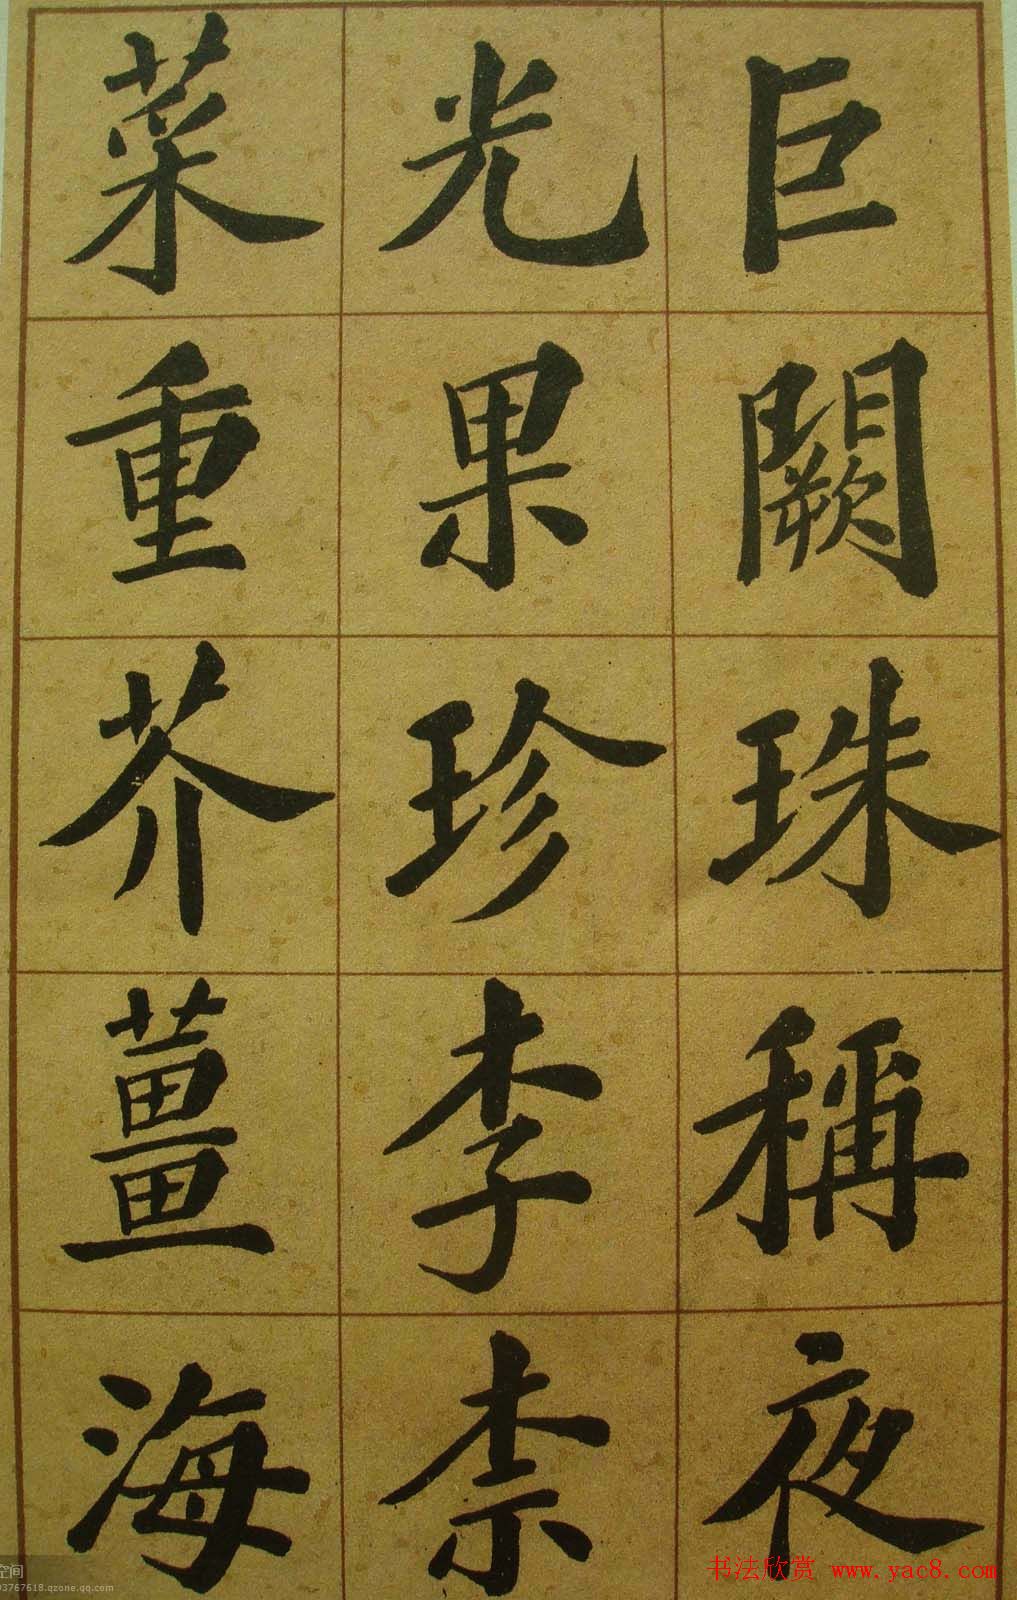 巨闕珠稱夜
光果珍李柰
菜重芥薑海
书法欣赏 www.yac8.com
空间
93767618.qzone.qq.com